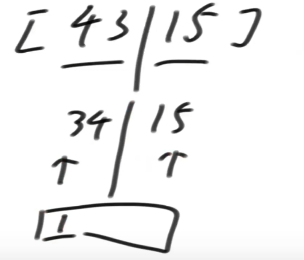 [ 43 | 15 ]
34 | 15
↑ ↑
1